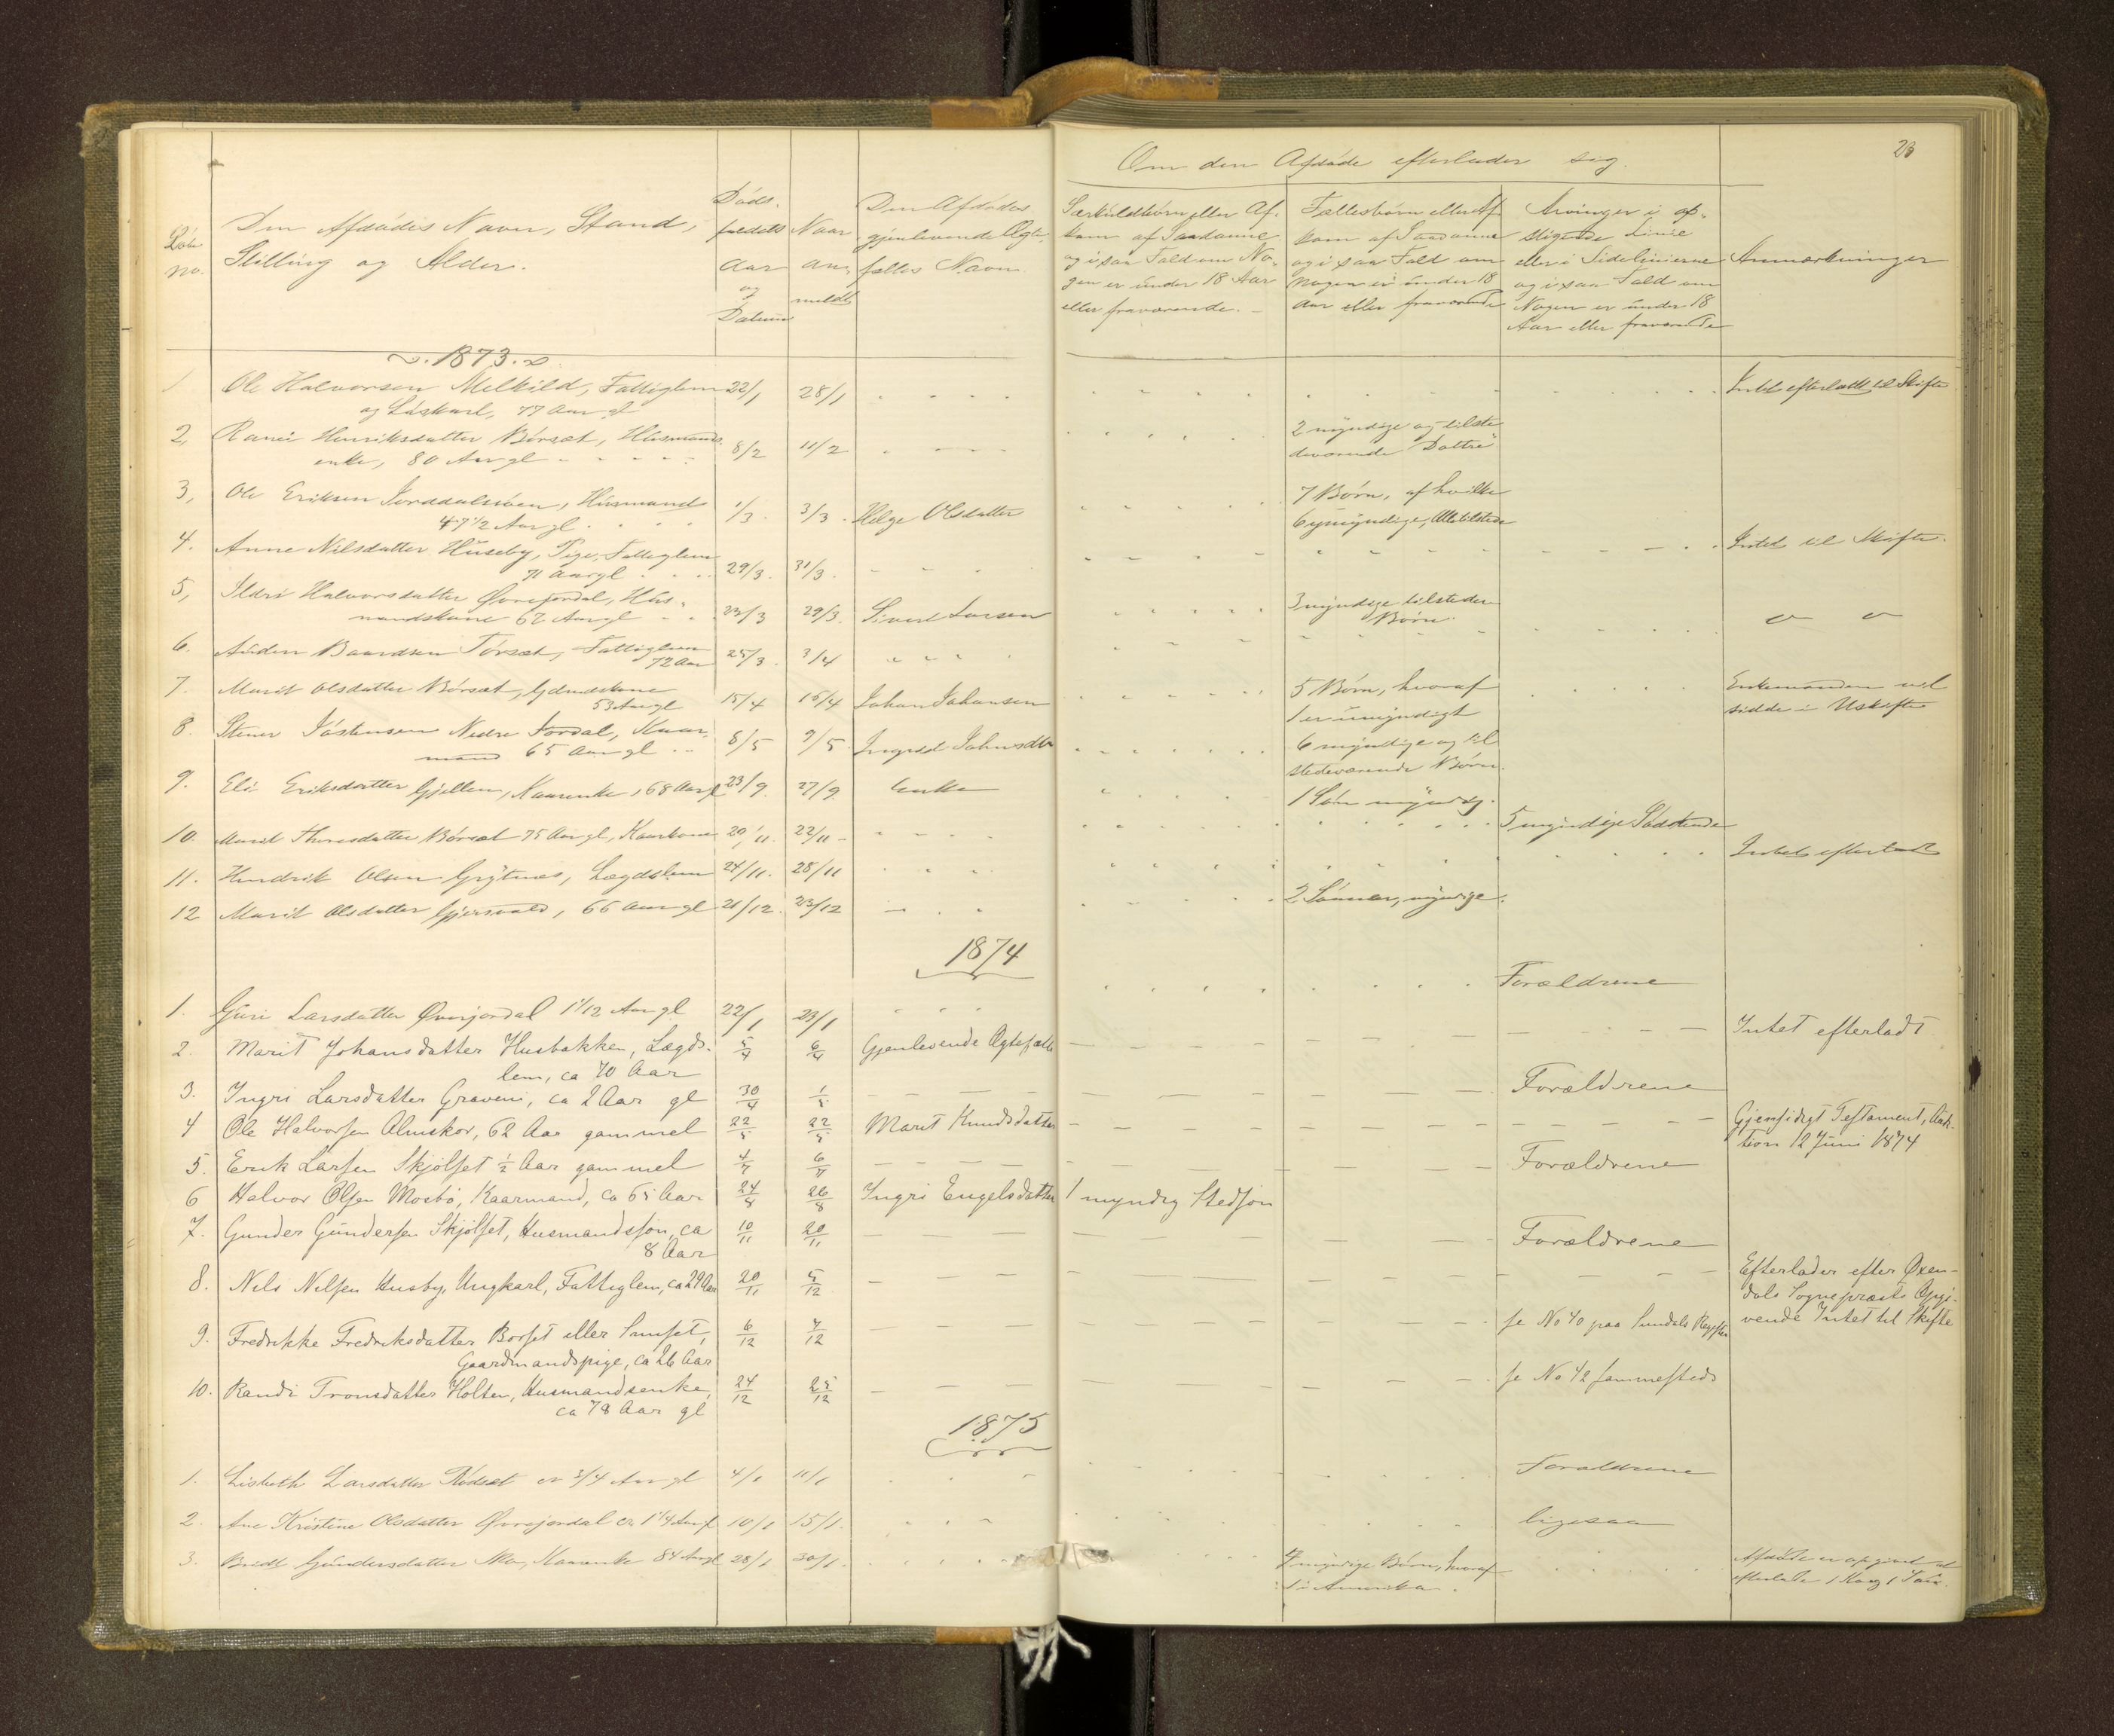 23
Om den Afdøde efterlader sig.
Løbe no.
Den Afdødes Navn, Stand, Stilling og Alder.
Døds-faldets Aar og Datum
Naar anmeldt
Den Afdødes gjenlevende Ægtefælles Navn
Særkuldbørn eller Afkom af Saadanne og i saa Fald om Nogen er under 18 Aar eller fraværende.
Fællesbørn eller Afkom af Saadanne og i saa Fald om Nogen er under 18 Aar eller fraværende
Arvinger i opstigende Linie eller i Sidelinierne og i saa Fald om Nogen er under 18 Aar eller fraværende
Anmærkninger
1873.
1. Ole Halvorsen Melkild, Fattiglem 22/1 28/1 Intet efterladt til Skifte
og Løskarl, 77 Aar gl
2, Ranei Henriksdatter Børsæt, Husmands- 8/2 11/2 2 myndige og tilste
enke, 80 Aar gl deværende Døttre
3, Ole Eriksen Jorddalsøen, Husmand 1/3 3/3 Helge Olsdatter 7 Børn, af hvilke
47 1/2 Aar gl 6 umyndige, Alle tilstede
4. Anne Nilsdatter Huseby, Pige, Fattiglem 29/3 31/3 Intet til Skifte.
71 Aar gl
5, Ildri Halvorsdatter Øvrejordal, Hus- 23/3 29/3 Sivert Larsen 3 myndige tilstede
mandskone 62 Aar gl Børn.
6. Auden Baardsen Torsæt, Fattiglem 25/3 3/4
72 Aar
7. Marit Olsdatter Børsæt, Gdmdskone 15/4 16/4 Johan Johansen 5 Børn, hvoraf Enkemanden vil
53 Aar gl 1 er umyndigt sidde i Uskifte
8. Stener Jostensen Nedre Jordal, Kaar- 8/5 9/5 Ingrid Johnsdtr 6 myndige og til
mand 65 Aar gl stedeværende Børn.
9. Eli Eriksdatter Gjellen, Kaarenke, 68 Aar gl 23/9. 27/9. Enke 1 Søn myndig.
10. Marit Thoresdatter Børsæt 75 Aar gl, Kaarkone 20/11. 22/11 5 myndige Sødskende
11. Hendrik Olsen Grytnes, Lægdslem 24/11. 28/11 Intet efterladt
12 Marit Olsdatter Gjersvold, 66 Aar gl 21/12. 23/12 2 Sønner, myndige.
1874
1. Guri Larsdatter Øvrejordal 1 1/12 Aar gl 22/1 23/1 Forældrene
2. Marit Johansdatter Husbakken, Lægds- 5/4 6/4 Gjenlevende Ægtefælle Intet efterladt
lem, ca 70 Aar
3. Ingri Larsdatter Graven, ca 2 Aar gl 30/4 1/5 Forældrene
4 Ole Halvorsen Almskor, 62 Aar gammel 22/5 22/5 Marit Knudsdatter Gjensidigt Testament, Auk-
tion 12 Juni 1874
5. Erik Larsen Skjølset 1/2 Aar gammel 4/7 6/7 Forældrene
6 Halvor Olsen Mosbø, Kaarmand, ca 65 Aar 24/8 26/8 Ingri Engelsdatter 1 myndig Stedsøn
7. Gunder Gundersen Skjølset, Husmandssøn, ca 10/11 20/11 Forældrene
8 Aar
8. Nils Nilsen Husby, Ungkarl, Fattiglem, ca 29 Aar 20/11 5/12 Efterlader efter Øxen-
dals Sognepræsts Opgi-
vende Intet til Skifte
9. Fredrikke Fredriksdatter Borset eller Sunset, 6/12 7/12 se No 40 paa Sundals Register
Gaardmandspige, ca 26 Aar
10. Randi Tronsdatter Holten, Husmandsenke, 24/12 25/12 se No 42 sammesteds
ca 78 Aar gl
1875
1. Lisbeth Larsdatter Rødsæt ca 3/4 Aar gl 4/1 11/1 Forældrene
2. Ane Kristine Olsdatter Øvrejordal ca 1 1/4 Aar gl 10/1 15/1. ligesaa
3. Gundersdatter Mo, Kaarenke 84 Aar gl 28/1 30/1. 4 myndige Børn, hvoraf Afdøde er opgivet at
1 i Amerika. efterlade 1 Ko og 1 Sau